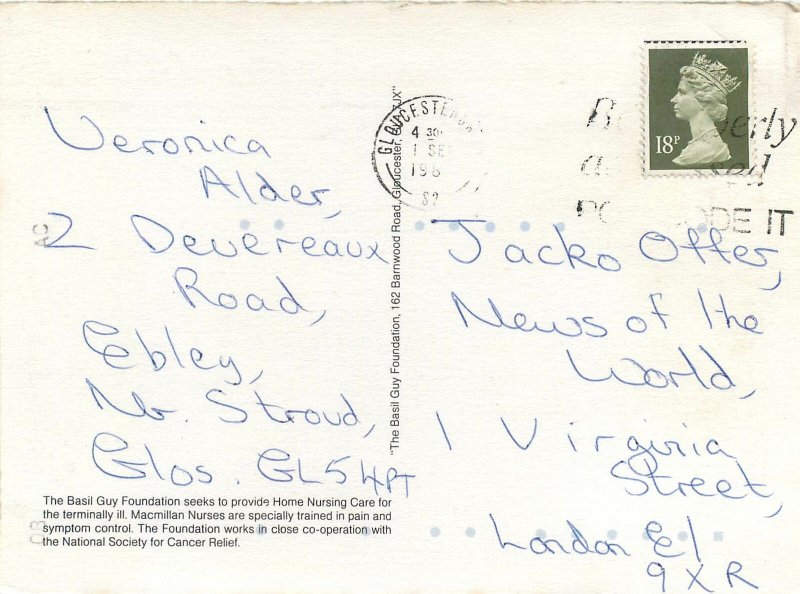 Veronica
Alder,
2 Devereaux
Road,
Ebley,
Nr. Stroud,
Glos. GL5 4PT
The Basil Guy Foundation seeks to provide Home Nursing Care for
the terminally ill. Macmillan Nurses are specially trained in pain and
symptom control. The Foundation works in close co-operation with
the National Society for Cancer Relief.
"The Basil Guy Foundation, 162 Barnwood Road, Gloucester, 7JX"
4 30
1 SE
198
18P
IT
Jacko Offer,
News of the
World,
1 Virginia
Street,
London E1
9XR